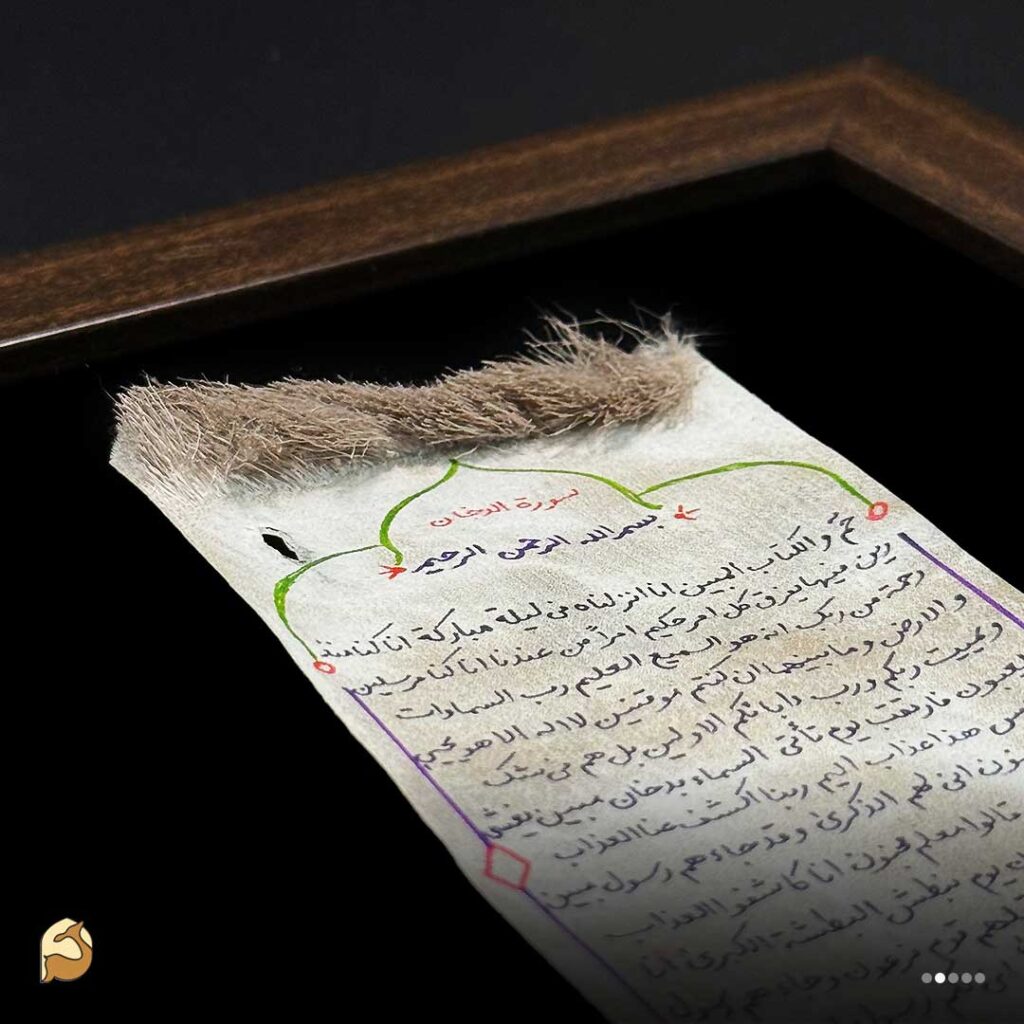 سورة الدخان
بسم الله الرحمن الرحيم
حم و الكتاب المبين انا انزلناه فى ليلة مباركة انا كنا منذ
رين فيها يفرق كل امر حكيم امراً من عندنا انا كنا مرسلين
رحمة من ربك انه هو السميع العليم رب السماوات
و الارض و ما بينهما ان كنتم موقنين لا اله الا هو يحيى
و يميت ربكم و رب ابائكم الاولين بل هم فى شك
يلعبون فارتقب يوم تأتى السماء بدخان مبين يغشى
هذا عذاب اليم ربنا اكشف عنا العذاب
انى لهم الذكرى و قد جاءهم رسول مبين
قالوا معلم مجنون انا كاشفوا العذاب
يوم نبطش البطشة الكبرى انا
قوم فرعون و جاءهم رسول